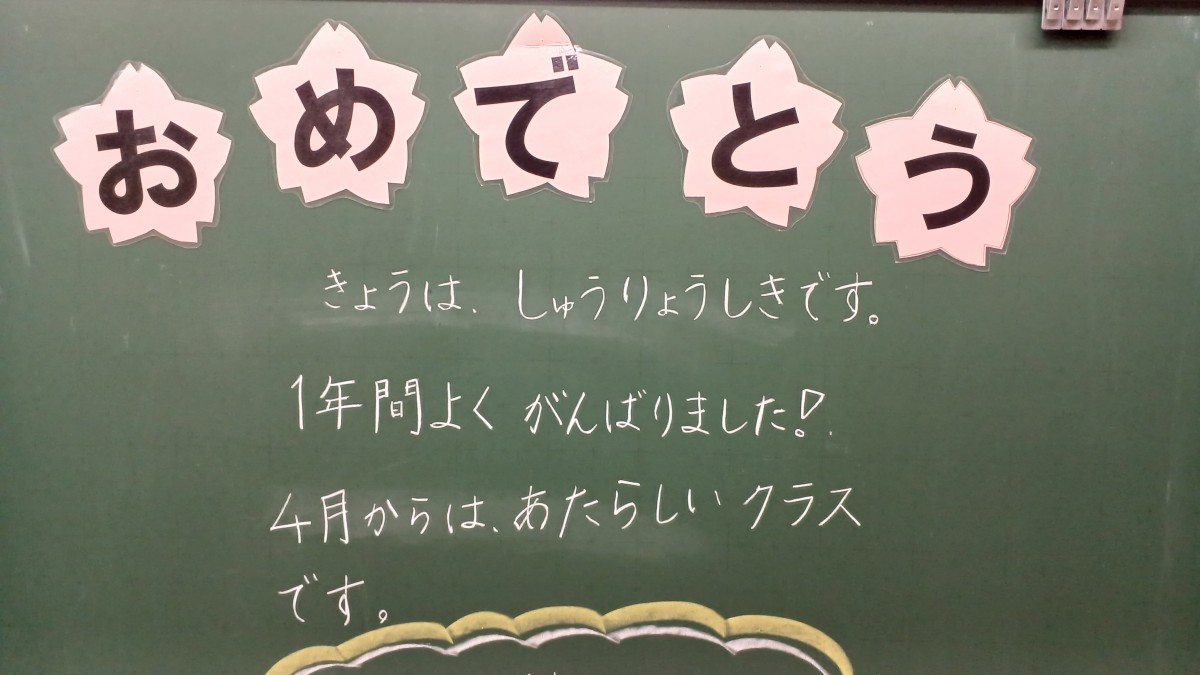 おめでとう
きょうは、しゅうりょうしきです。
1年間よく がんばりました!
4月からは、あたらしい クラス
です。